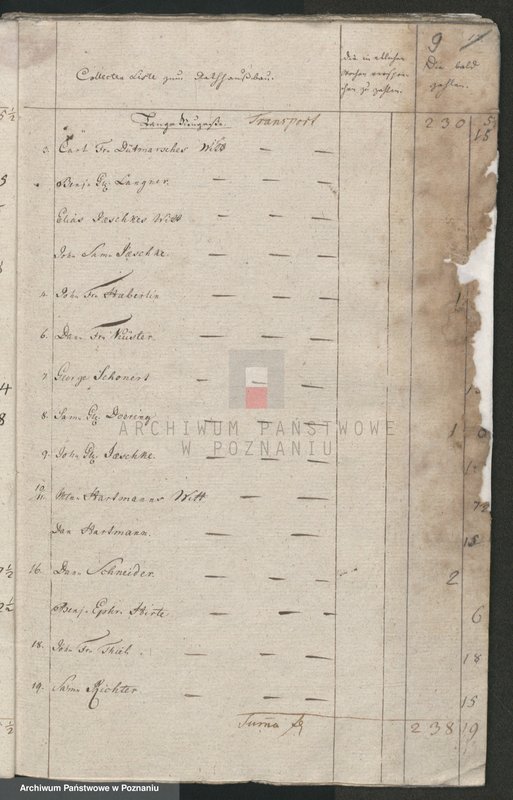 9
Collecten Liste zum Rathhauß bau.
Die in etlichen
Wochen verspre-
chen zu zahlen.
Die bald
zahlen.
Lange Transport 230 5
3. Carl Fr. Dittmarsches Witt 15
Benj. Gl. Langner.
Elias Jaeschkes Witt
Joh. Sam. Jaeschke.
4. Joh. Fr. Haberlin 1
6. Dan. Fr. Küster.
7. George Schonert
8. Sam. Gl. Doering 1
9. Joh. Gl. Jaeschke
10.
11. Hartmanns Witt
Dan Hartmann. 15
16. Dan. Schneider. 2
Benj. Ephr. Hirte 6
18. Joh. Fr. Thiel. 18
19. Sam. Richter 15
Suma 238 19
ARCHIWUM PAŃSTWOWE
W POZNANIU
Archiwum Państwowe w Poznaniu